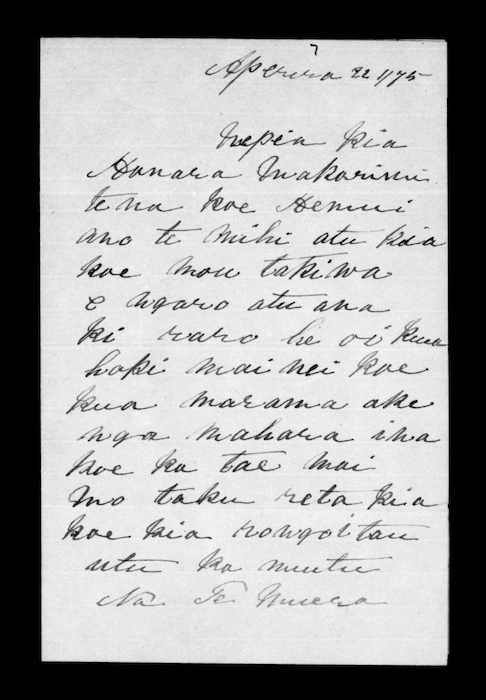 Aperira 22 1/75
Nepia kia
Hanara Makarini
tena koe He nui
ano te mihi atu kia
koe mou takiwa
e ngaro atu ana
ki raro he oi kua
hoki mai nei koe
kua marama ake
nga mahara ina
koe ka tae mai
mo taku reta kia
koe kia rongo i tau
utu ka mutu
Na Te